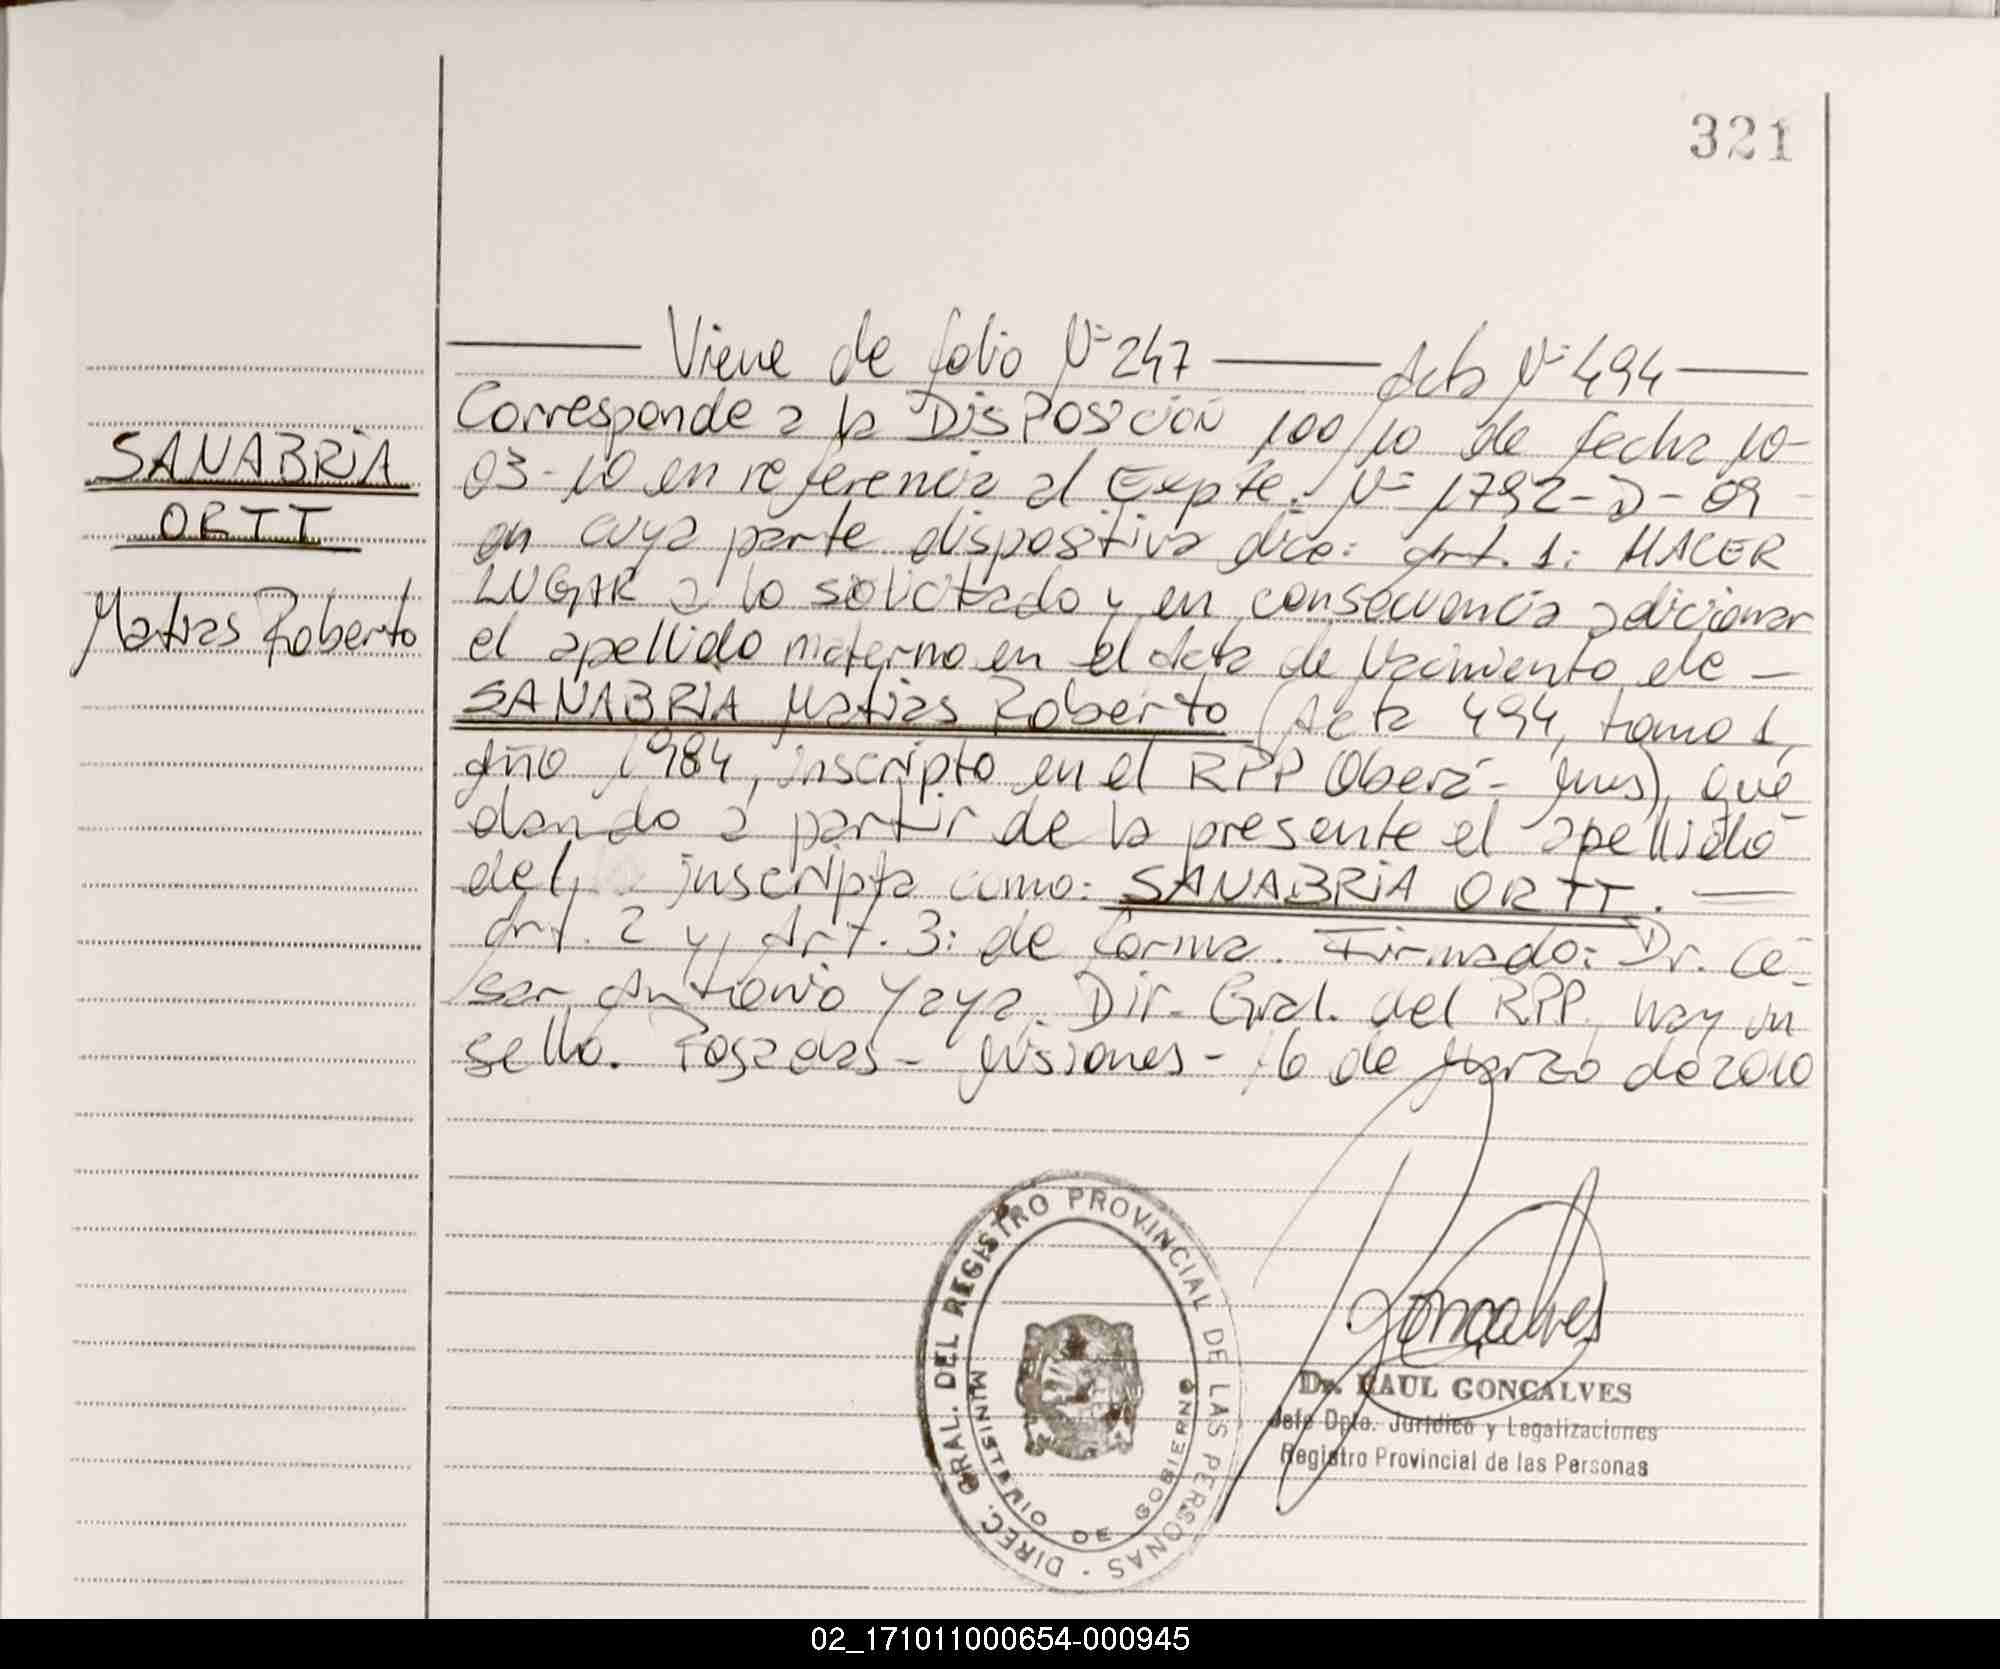 321
Viene de folio Nº 247 Acta Nº 494
Corresponde a la DISPOSICIÓN 100/10 de fecha 10-
03-10 en referencia al Expte. Nº 1792-D-09
en cuya parte dispositiva dice: Art. 1: HACER
LUGAR a lo solicitado y en consecuencia adicionar
el apellido materno en el Acta de Nacimiento de
SANABRIA Matias Roberto (Acta 494, tomo 1,
Año 1984, inscripto en el RPP Oberá - Mnes), que
dando a partir de la presente el apellido
del inscripta como: SANABRIA ORTT.
Art. 2 y Art. 3: de forma. Firmado: Dr. Cé
sar Antonio Yaya. Dir. Gral. del RPP. hay un
sello. Posadas - Misiones - 16 de Marzo de 2010
SANABRIA
ORTT
Matias Roberto
DIREC. GRAL. DEL REGISTRO PROVINCIAL DE LAS PERSONAS
MINISTERIO DE GOBIERNO
Goncalves
Dr. RAUL GONCALVES
Jefe Dpto. Jurídico y Legalizaciones
Registro Provincial de las Personas
02_171011000654-000945